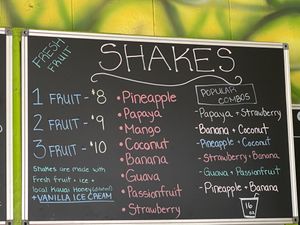 FRESH
FRUIT
SHAKES
1 FRUIT - $8
2 FRUIT - $9
3 FRUIT - $10
Shakes are made with
Fresh fruit + ice +
local Kauai Honey
+ VANILLA ICE CREAM
• Pineapple
• Papaya
• Mango
• Coconut
• Banana
• Guava
• Passionfruit
• Strawberry
POPULAR
COMBOS
- Papaya + Strawberry
- Banana + Coconut
- Pineapple + Coconut
- Strawberry + Banana
- Guava + Passionfruit
- Pineapple + Banana
16
oz